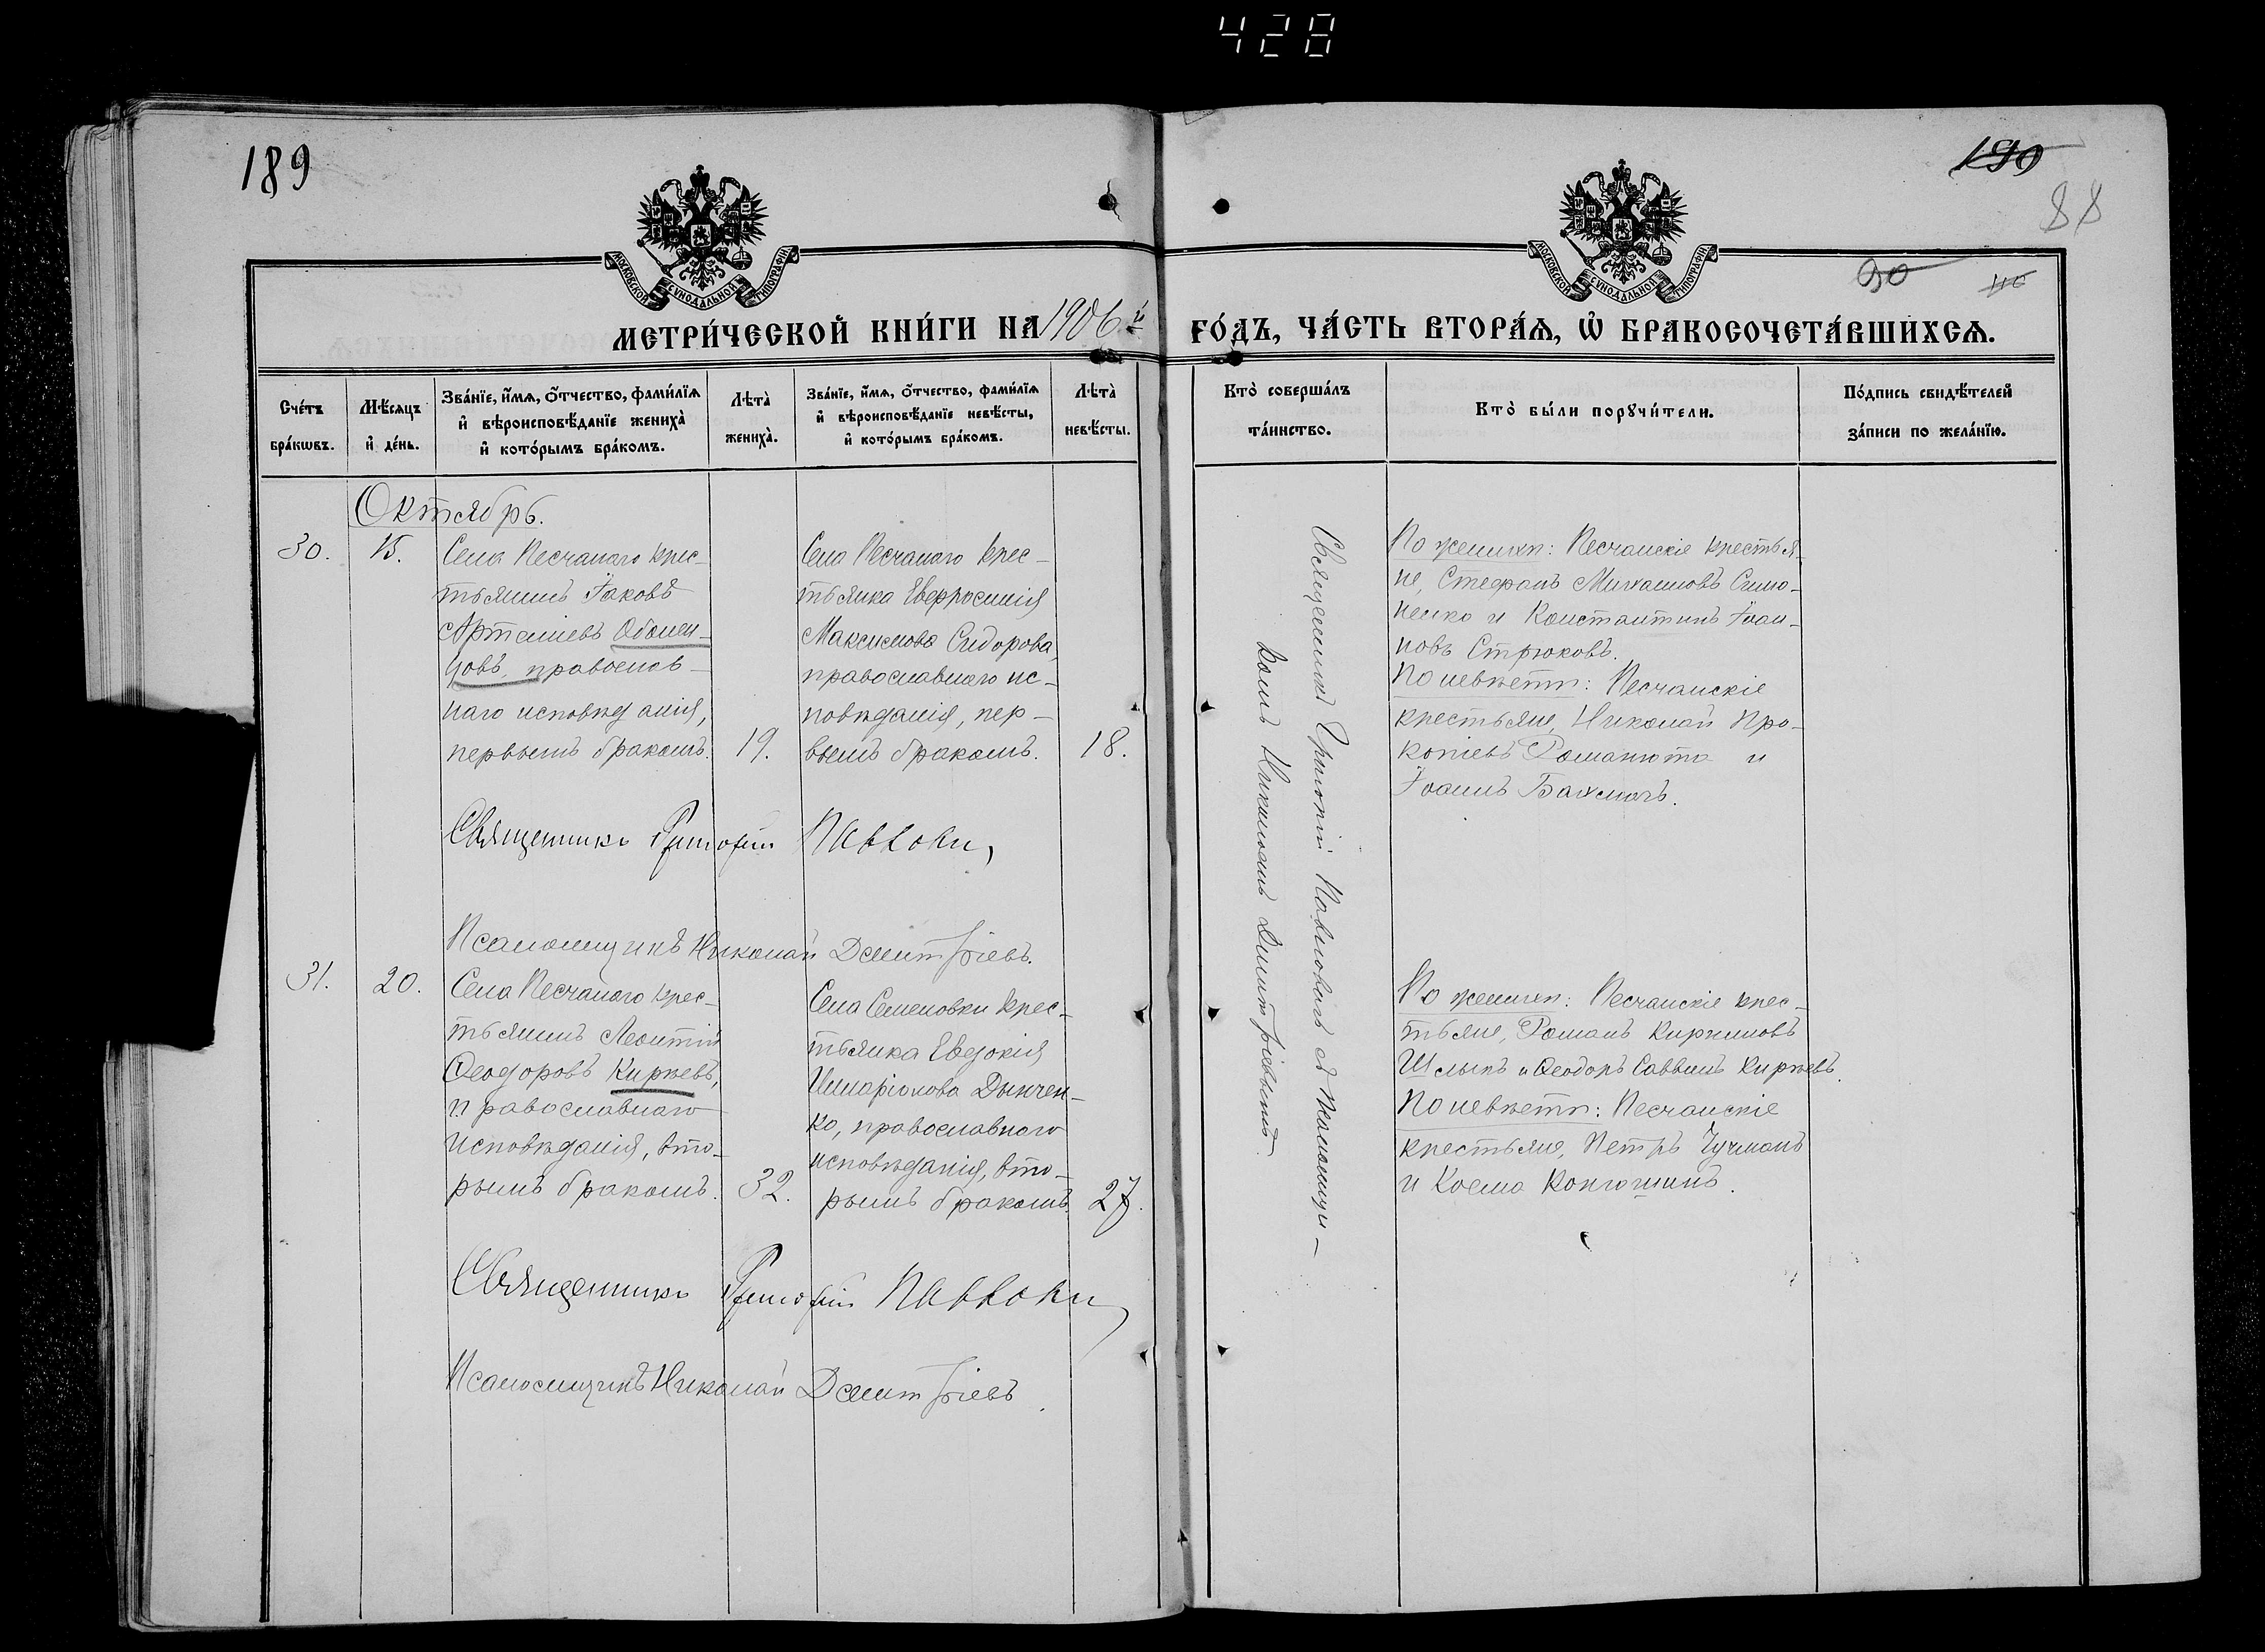 428
189
190
88
90
116
МОСКОВСКОЙ СѴНОДАЛЬНОЙ ТИПОГРАФІИ
МОСКОВСКОЙ СѴНОДАЛЬНОЙ ТИПОГРАФІИ
МЕТРИ́ЧЕСКОЙ КНИ́ГИ НА 1906 й ГО́ДЪ, ЧА́СТЬ ВТОРА́Ѧ, Ѽ БРАКОСОЧЕТА́ВШИХСѦ.
Сче́тъ бра́кѡвъ.
Мѣ́сѧцъ и҆ де́нь.
Зва́нїе, и҆́мѧ, ѻ҆́тчество, фами́лїѧ
и҆ вѣроисповѣ́данїе жениха̀
и҆ кото́рымъ бра́комъ.
Лѣта̀ жениха̀.
Зва́нїе, и҆́мѧ, ѻ҆́тчество, фами́лїѧ
и҆ вѣроисповѣ́данїе невѣ́сты,
и҆ кото́рымъ бра́комъ.
Лѣта̀ невѣ́сты.
Кто̀ соверша́лъ та́инство.
Кто̀ бы́ли порꙋчи́тели.
По́дпись свидѣ́телей за́писи по жела́нїю.
Октябрь.
30.
15.
Села Песчанаго крес-
тьянинъ Іаковъ
Артемiевъ Обомен-
цовъ, православ-
наго исповѣданія,
первымъ бракомъ.
19.
Села Песчанаго крес-
тьянка Евфросинія
Максимова Сидорова,
православнаго ис-
повѣданія, пер-
вымъ бракомъ.
18.
Священникъ Григорій Павловичъ съ Псаломщи-
комъ Николаемъ Димитріевымъ.
По женихѣ: Песчанскіе крестья-
не, Стефанъ Михаиловъ Симо-
ненко и Константинъ Іоан-
новъ Стрюковъ.
По невѣстѣ: Песчанскіе
крестьяне, Николай Про-
копіевъ Романюта и
Іоаннъ Бахмачъ.
Священникъ Григорій Павлович,
Псаломщикъ Николай Димитріевъ.
31.
20.
Села Песчанаго крес-
тьянинъ Леонтій
Ѳеодоровъ Кирѣевъ,
православнаго
исповѣданія, вто-
рымъ бракомъ.
32.
Села Семеновки крес-
тьянка Евдокія
Иларіонова Дынчен-
ко, православнаго
исповѣданія, вто-
рымъ бракомъ.
27.
По женихѣ: Песчанскіе крес-
тьяне, Романъ Кирилловъ
Шлыкъ и Ѳеодоръ Саввинъ Кирѣевъ.
По невѣстѣ: Песчанскіе
крестьяне, Петръ Чучманъ
и Косма Конюшинъ.
Священникъ Григорій Павлович
Псаломщикъ Николай Димитріевъ.